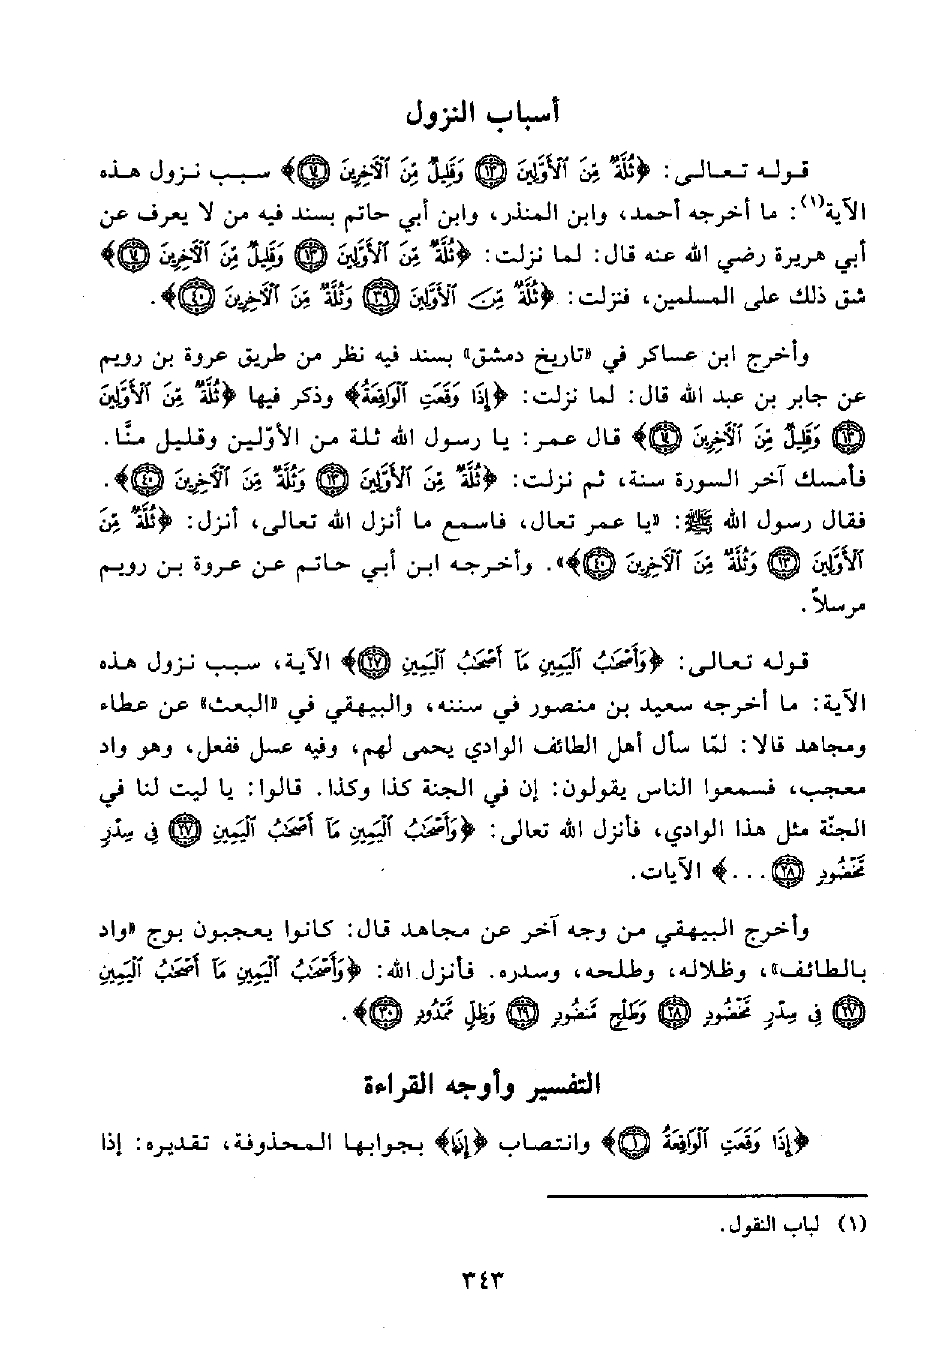 أسباب النزول
قوله تعالى: ﴿ثُلَّةٌ مِّنَ ٱلْأَوَّلِينَ ﴿١٣﴾ وَقَلِيلٌ مِّنَ ٱلْآخِرِينَ ﴿١٤﴾﴾ سبب نزول هذه
الآية(١): ما أخرجه أحمد، وابن المنذر، وابن أبي حاتم بسند فيه من لا يعرف عن
أبي هريرة رضي الله عنه قال: لما نزلت: ﴿ثُلَّةٌ مِّنَ ٱلْأَوَّلِينَ ﴿١٣﴾ وَقَلِيلٌ مِّنَ ٱلْآخِرِينَ ﴿١٤﴾﴾
شق ذلك على المسلمين، فنزلت: ﴿ثُلَّةٌ مِّنَ ٱلْأَوَّلِينَ ﴿٣٩﴾ وَثُلَّةٌ مِّنَ ٱلْآخِرِينَ ﴿٤٠﴾﴾.
وأخرج ابن عساكر في «تاريخ دمشق» بسند فيه نظر من طريق عروة بن رويم
عن جابر بن عبد الله قال: لما نزلت: ﴿إِذَا وَقَعَتِ ٱلْوَاقِعَةُ﴾ وذكر فيها ﴿ثُلَّةٌ مِّنَ ٱلْأَوَّلِينَ
﴿١٣﴾ وَقَلِيلٌ مِّنَ ٱلْآخِرِينَ ﴿١٤﴾﴾ قال عمر: يا رسول الله ثلة من الأوّلين وقليل منّا.
فأمسك آخر السورة سنة، ثم نزلت: ﴿ثُلَّةٌ مِّنَ ٱلْأَوَّلِينَ ﴿١٣﴾ وَثُلَّةٌ مِّنَ ٱلْآخِرِينَ ﴿٤٠﴾﴾.
فقال رسول الله ﷺ: «يا عمر تعال، فاسمع ما أنزل الله تعالى، أنزل: ﴿ثُلَّةٌ مِّنَ
ٱلْأَوَّلِينَ ﴿١٣﴾ وَثُلَّةٌ مِّنَ ٱلْآخِرِينَ ﴿٤٠﴾﴾». وأخرجه ابن أبي حاتم عن عروة بن رويم
مرسلاً.
قوله تعالى: ﴿وَأَصْحَٰبُ ٱلْيَمِينِ مَآ أَصْحَٰبُ ٱلْيَمِينِ ﴿٢٧﴾﴾ الآية، سبب نزول هذه
الآية: ما أخرجه سعيد بن منصور في سننه، والبيهقي في «البعث» عن عطاء
ومجاهد قالا: لمّا سأل أهل الطائف الوادي يحمى لهم، وفيه عسل ففعل، وهو واد
معجب، فسمعوا الناس يقولون: إن في الجنة كذا وكذا. قالوا: يا ليت لنا في
الجنّة مثل هذا الوادي، فأنزل الله تعالى: ﴿وَأَصْحَٰبُ ٱلْيَمِينِ مَآ أَصْحَٰبُ ٱلْيَمِينِ ﴿٢٧﴾ فِى سِدْرٍ
مَّخْضُودٍ ﴿٢٨﴾...﴾ الآيات.
وأخرج البيهقي من وجه آخر عن مجاهد قال: كانوا يعجبون بوج «واد
بالطائف»، وظلاله، وطلحه، وسدره. فأنزل الله: ﴿وَأَصْحَٰبُ ٱلْيَمِينِ مَآ أَصْحَٰبُ ٱلْيَمِينِ
﴿٢٧﴾ فِى سِدْرٍ مَّخْضُودٍ ﴿٢٨﴾ وَطَلْحٍ مَّنضُودٍ ﴿٢٩﴾ وَظِلٍّ مَّمْدُودٍ ﴿٣٠﴾﴾.
التفسير وأوجه القراءة
﴿إِذَا وَقَعَتِ ٱلْوَاقِعَةُ ﴿١﴾﴾ وانتصاب ﴿إِذَا﴾ بجوابها المحذوفة، تقديره: إذا
(١) لباب النقول.
٣٤٣